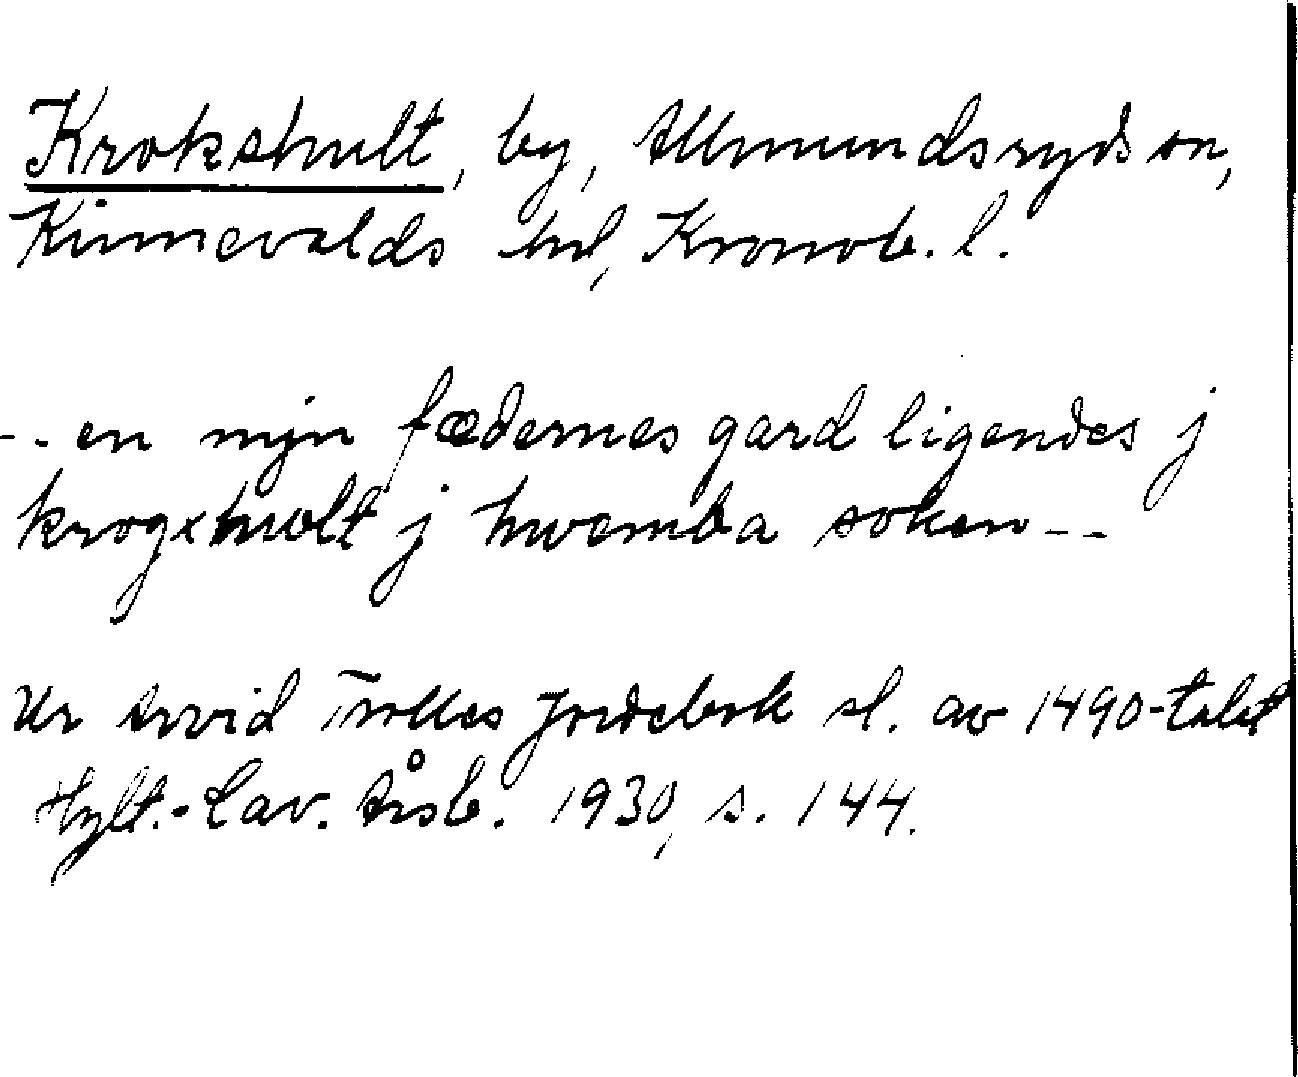 Krokshult, by, Almundsryds sn,
Kinnevalds hd, Kronob. l.
-- en mijn fædernes gard ligendes j
krogxhwlt j hwemba soken --
Ur Arvid Trolles Jordebok sl. av 1490-talet
Hylt.-Cav. Årsb. 1930, s. 144.